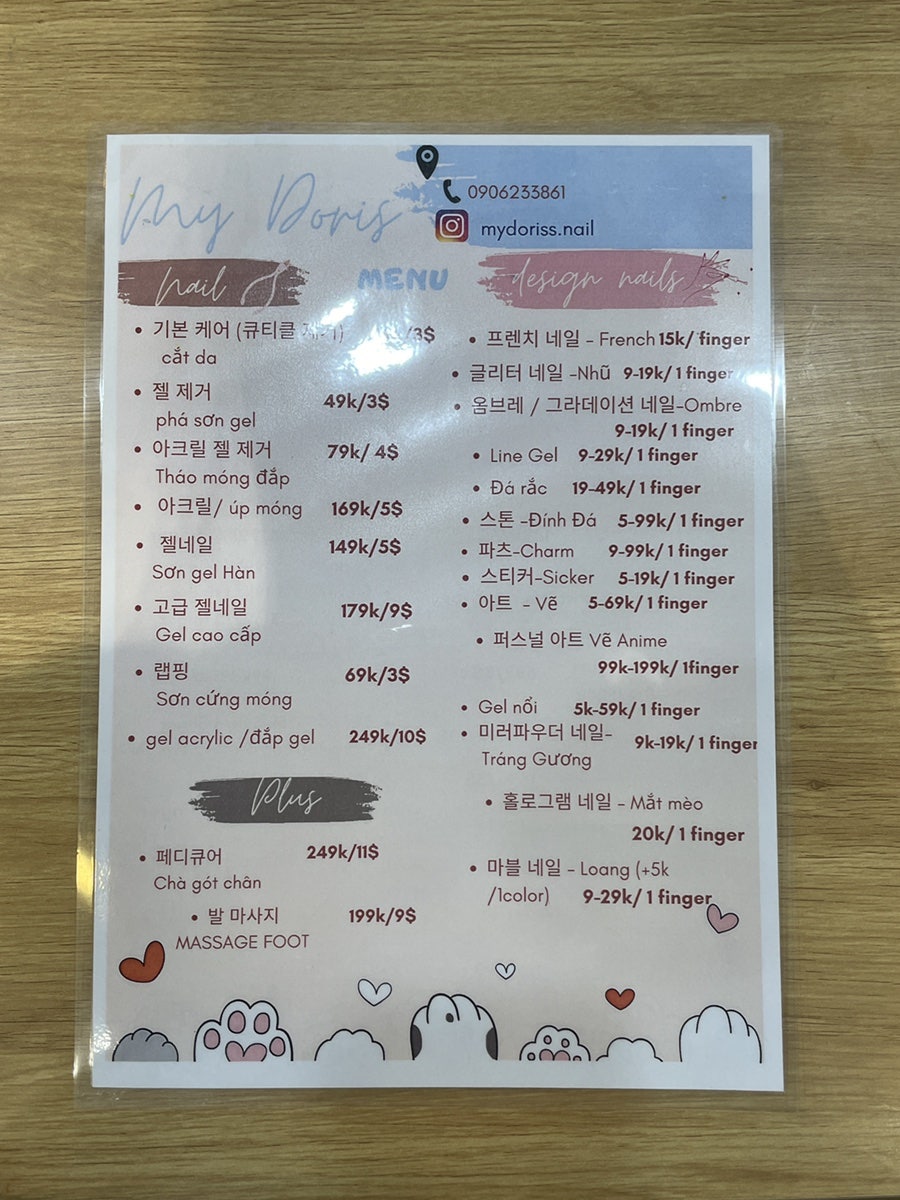 My Doris
0906233861
mydoriss.nail
nail
MENU
design nails
• 기본 케어 (큐티클 제거) /3$
cắt da
• 젤 제거 49k/3$
phá sơn gel
• 아크릴 젤 제거 79k/ 4$
Tháo móng đắp
• 아크릴/ úp móng 169k/5$
• 젤네일 149k/5$
Sơn gel Hàn
• 고급 젤네일 179k/9$
Gel cao cấp
• 랩핑 69k/3$
Sơn cứng móng
• gel acrylic /đắp gel 249k/10$
Plus
• 페디큐어 249k/11$
Chà gót chân
• 발 마사지 199k/9$
MASSAGE FOOT
• 프렌치 네일 - French 15k/ finger
• 글리터 네일 -Nhũ 9-19k/ 1 finger
• 옴브레 / 그라데이션 네일-Ombre
9-19k/ 1 finger
• Line Gel 9-29k/ 1 finger
• Đá rắc 19-49k/ 1 finger
• 스톤 -Đính Đá 5-99k/ 1 finger
• 파츠-Charm 9-99k/ 1 finger
• 스티커-Sicker 5-19k/ 1 finger
• 아트 - Vẽ 5-69k/ 1 finger
• 퍼스널 아트 Vẽ Anime
99k-199k/ 1finger
• Gel nổi 5k-59k/ 1 finger
• 미러파우더 네일- 9k-19k/ 1 finger
Tráng Gương
• 홀로그램 네일 - Mắt mèo
20k/ 1 finger
• 마블 네일 - Loang (+5k
/1color) 9-29k/ 1 finger